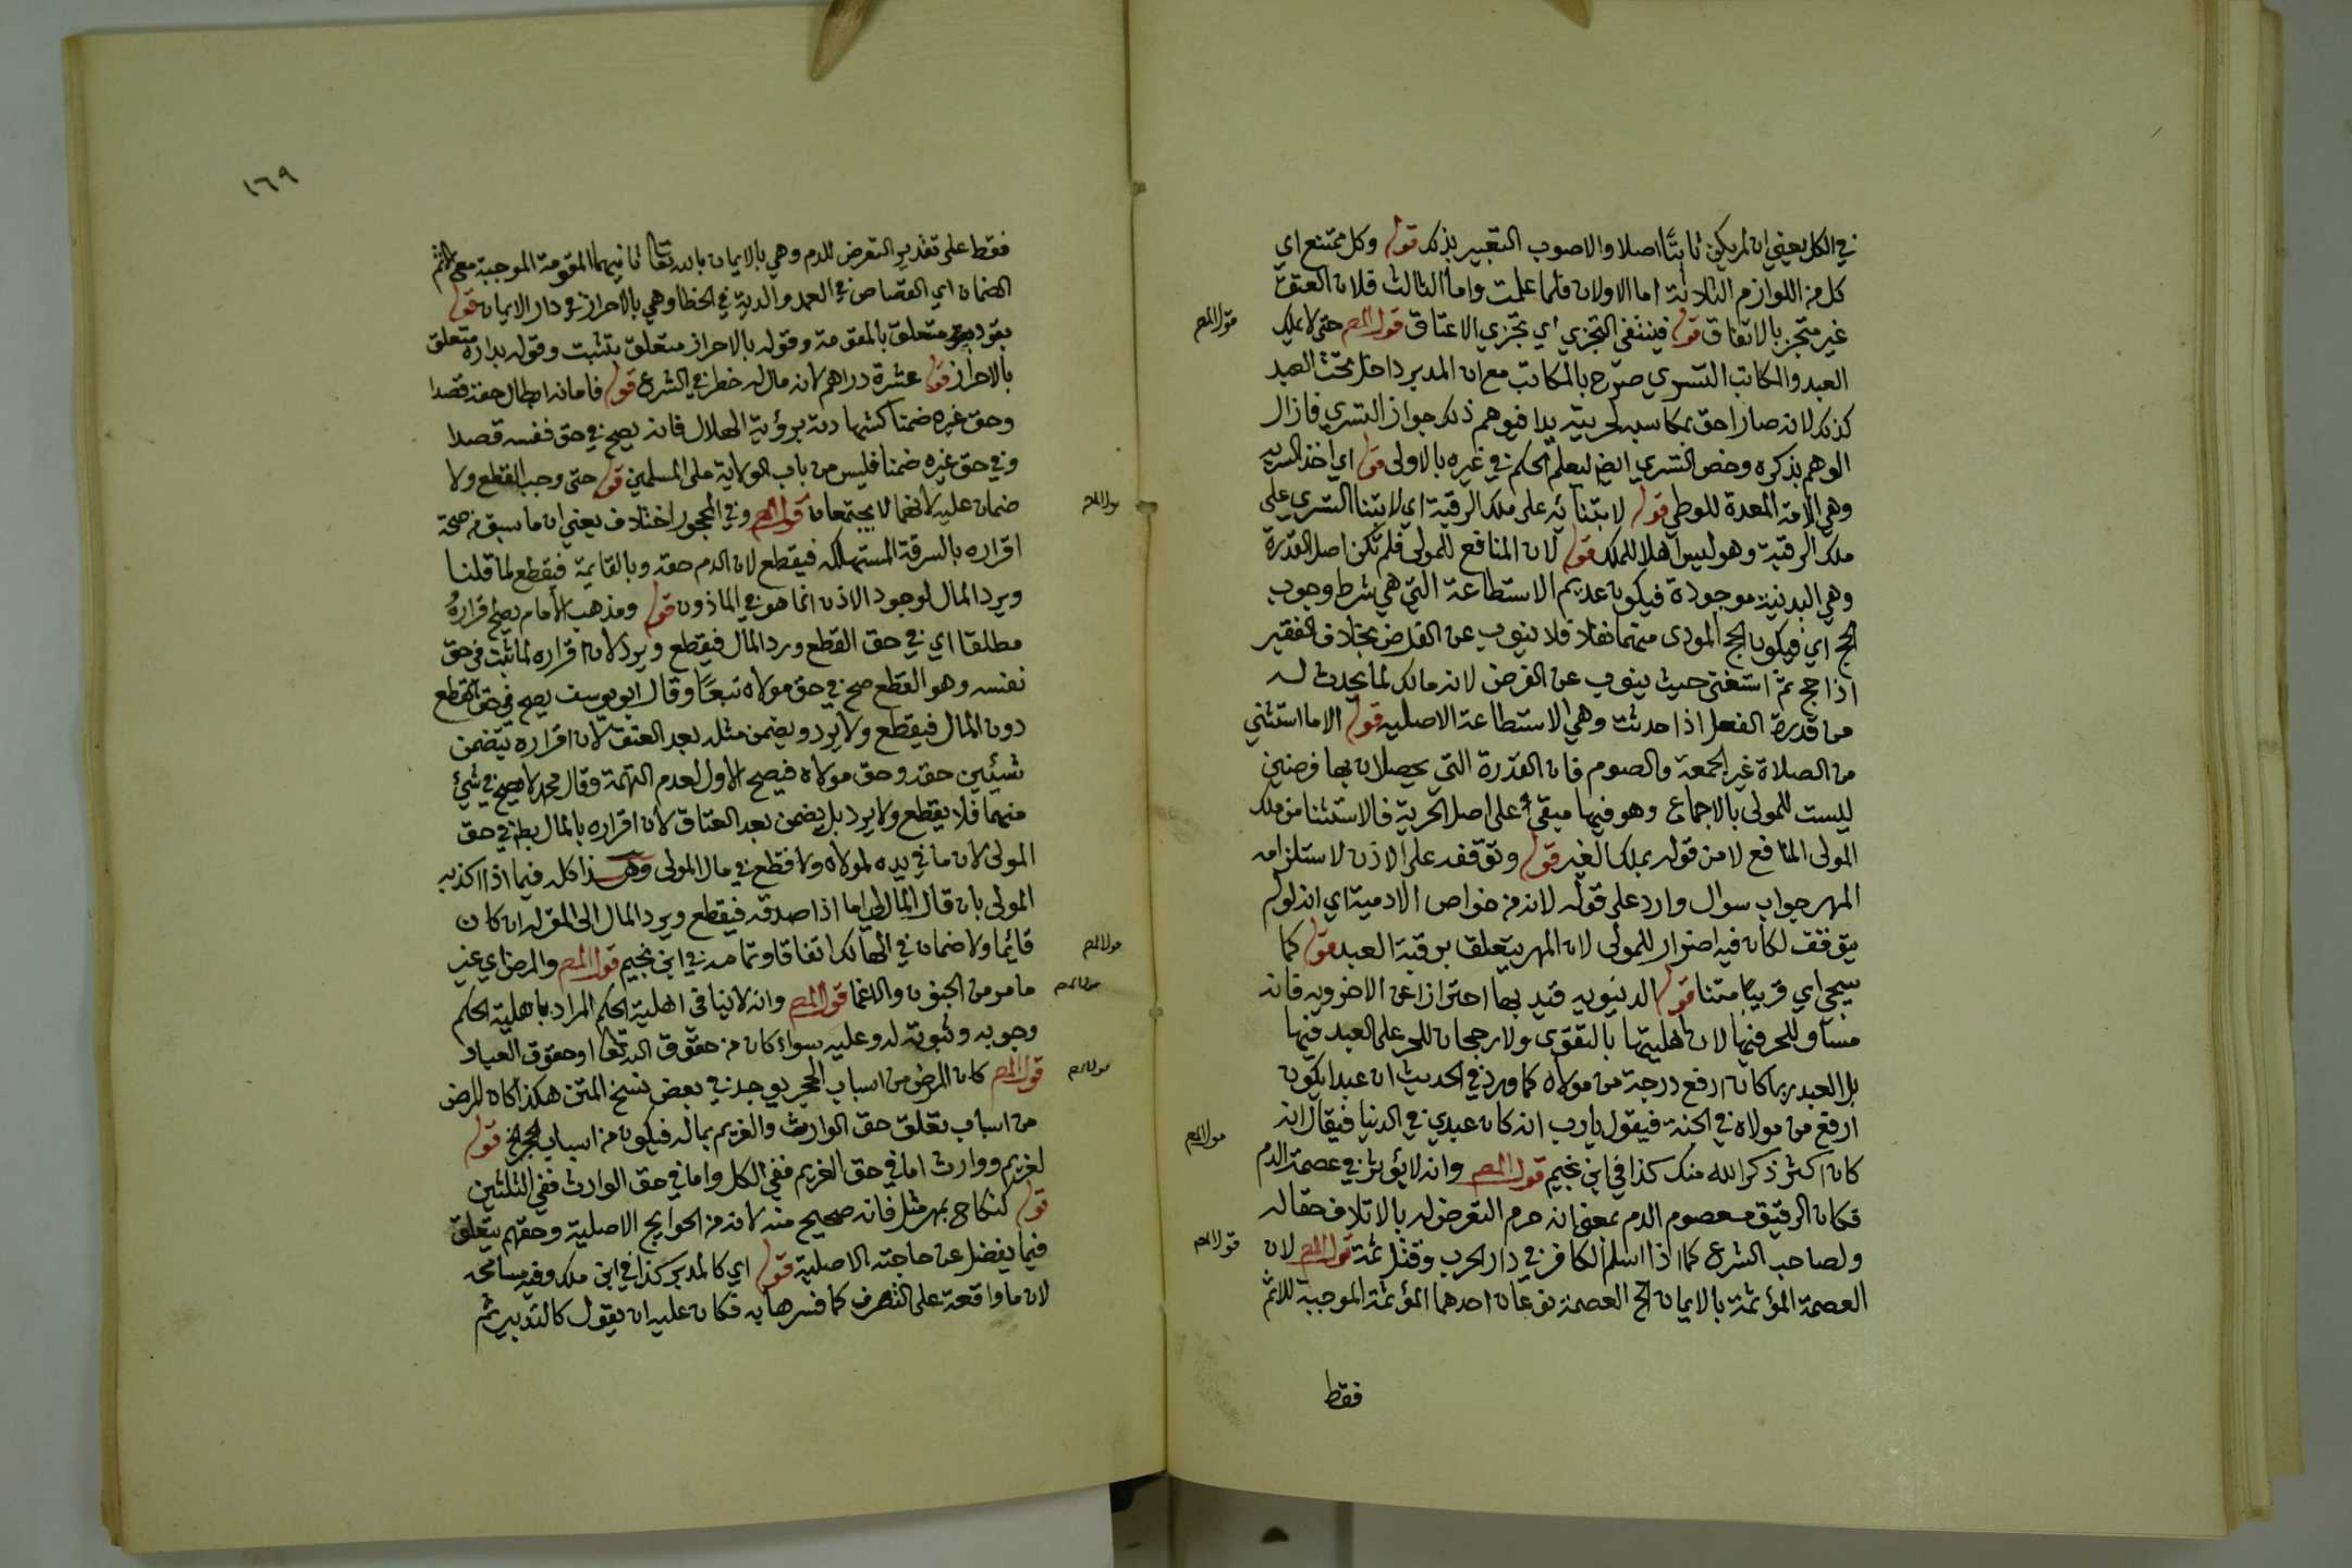 في الكل يعني ان لم يكن ثابتا اصلا والاصوب التعبير بذلك قوله وكل ممتنع اي
كل من اللوازم الثلاثة اما الاولان فلما علمت واما الثالث فلان العتق
غير متجز بالاتفاق قوله فينتفي التجزي اي تجزي الاعتاق قول المص حتى لا يملك
قول المص
العبد والمكاتب التسري صرح بالمكاتب مع ان المدبر داخل تحت العبد
كذلك لانه صار احق بمكاسبه لحريته يدا فيوهم ذلك جواز التسري فازال
الوهم بذكره وخص التسري ايض ليعلم الحكم في غيره بالاولى قوله اي اخذ السرية
وهي الامة المعدة للوطي قوله لابتنائه على ملك الرقبة اي لابتنا التسري على
ملك الرقبة وهو ليس اهلا للملك قوله لان المنافع للمولى فلم تكن اصل القدرة
وهي البدنية موجودة فيكون عديم الاستطاعة التي هي شرط وجوب
الحج اي فيكون الحج المودى منهما نفلا فلا ينوب عن الفرض بخلاف الفقير
اذا حج ثم استغنى حيث ينوب عن الفرض لانه مالك لما يحدث له
من قدرة الفعل اذا حدثت وهي الاستطاعة الاصلية قوله الا ما استثني
من الصلاة غير الجمعة والصوم فان القدرة التي يحصلان بها فرضين
ليست للمولى بالاجماع وهو فيها مبقي على اصل الحرية فالاستثنا من ملك
المولى المنافع لا من قوله بملك الغير قوله وتوقفه على الاذن لاستلزامه
المهر جواب سوال وارد على قوله لانه من خواص الادمية اي انه لو لم
يتوقف لكان فيه اضرار للمولى لان المهر يتعلق برقبة العبد قوله كما
سيجي اي قريبا متنا قوله الدنيويه قيد بها احترازا عن الاخرويه فانه
مساو للحر فيها لان اهليتها بالتقوى ولا رجحان للحر على العبد فيها
بل العبد ربما كان ارفع درجة من مولاه كما ورد في الحديث ان عبدا يكون
ارفع من مولاه في الجنة فيقول يا رب انه كان عبدي في الدنيا فيقال انه
قول المص
كان اكثر ذكر الله منك كذا في ابن نجيم قول المص وانه لا يؤثر في عصمة الدم
فكان الرقيق معصوم الدم بمعنى انه حرم التعرض له بالاتلاف حقا له
ولصاحب الشرع كما اذا اسلم الكافر في دار الحرب وقتل ثمة قول المص لان
قول المص
العصمة المؤثمة بالايمان الخ العصمة نوعان احدهما المؤثمة الموجبة للاثم
فقط
١٦٩
فقط على تقدير التعرض للدم وهي بالايمان بالله تعالى ثانيهما المقومة الموجبة مع الاثم
الضمان اي القصاص في العمد والدية في الخطا وهي بالاحراز في دار الايمان قوله
متعلق بالمقومة وقوله بالاحراز متعلق بتثبت وقوله بداره متعلق
بالاحراز قوله عشرة دراهم لانه مال له خطر في الشرع قوله فامانه ابطال حقه قصدا
وحق غيره ضمنا كشهادته برؤية الهلال فانه يصح في حق نفسه قصدا
وفي حق غيره ضمنا فليس من باب الولاية على المسلمين قوله حتى وجب القطع ولا
ضمان عليه لانهما لا يجتمعان قول المص وفي المحجور اختلاف يعني ان ما سبق من صحة
قول المص
اقراره بالسرقة المستهلكه فيقطع لان الدم حقه وبالقايمة فيقطع لما قلنا
ويرد المال لوجود الاذن انما هو في الماذون قوله ومذهب الامام يصح اقراره
مطلقا اي في حق القطع ورد المال فيقطع ويرد لان اقراره لما ثبت في حق
نفسه وهو القطع صح في حق مولاه تبعا وقال ابو يوسف يصح في حق القطع
دون المال فيقطع ولا يرد ويضمن مثله بعد العتق لان اقراره يتضمن
شيئين حقه وحق مولاه فيصح الاول لعدم التهمة وقال محمد لا يصح في شئ
منهما فلا يقطع ولا يرد بل يضمن بعد العتاق لان اقراره بالمال بط في حق
المولى لان ما في يده لمولاه ولا قطع في مال المولى وهذا كله فيما اذا اكذبه
المولى بان قال المال لي اما اذا صدقه فيقطع ويرد المال الى المقر له ان كان
قائما ولا ضمان في الهالك اتفاقا وتمامه في ابن نجيم قول المص والمرض اي غير
قول المص
ما مر من الجنون والاغما قول المص وانه لا ينافي اهلية الحكم المراد باهلية الحكم
قول المص
وجوبه وثبوته له وعليه سواء كان من حقوق الله تعالى او حقوق العباد
قول المص كان المرض من اسباب الحجر يوجد في بعض نسخ المتن هكذا كان المرض
قول المص
من اسباب تعلق حق الوارث والغريم بماله فيكون من اسباب الحجر الخ قوله
لغريم ووارث اما في حق الغريم ففي الكل واما في حق الوارث ففي الثلثين
قوله كنكاح بمهر مثل فانه صحيح منه لانه من الحوايج الاصلية وحقهم يتعلق
فيما يفضل عن حاجته الاصلية قوله اي كالمدبر كذا في ابن ملك وفيه مسامحه
لان ما واقعة على التصرف كما فسرها به فكان عليه ان يقول كالتدبير ثم